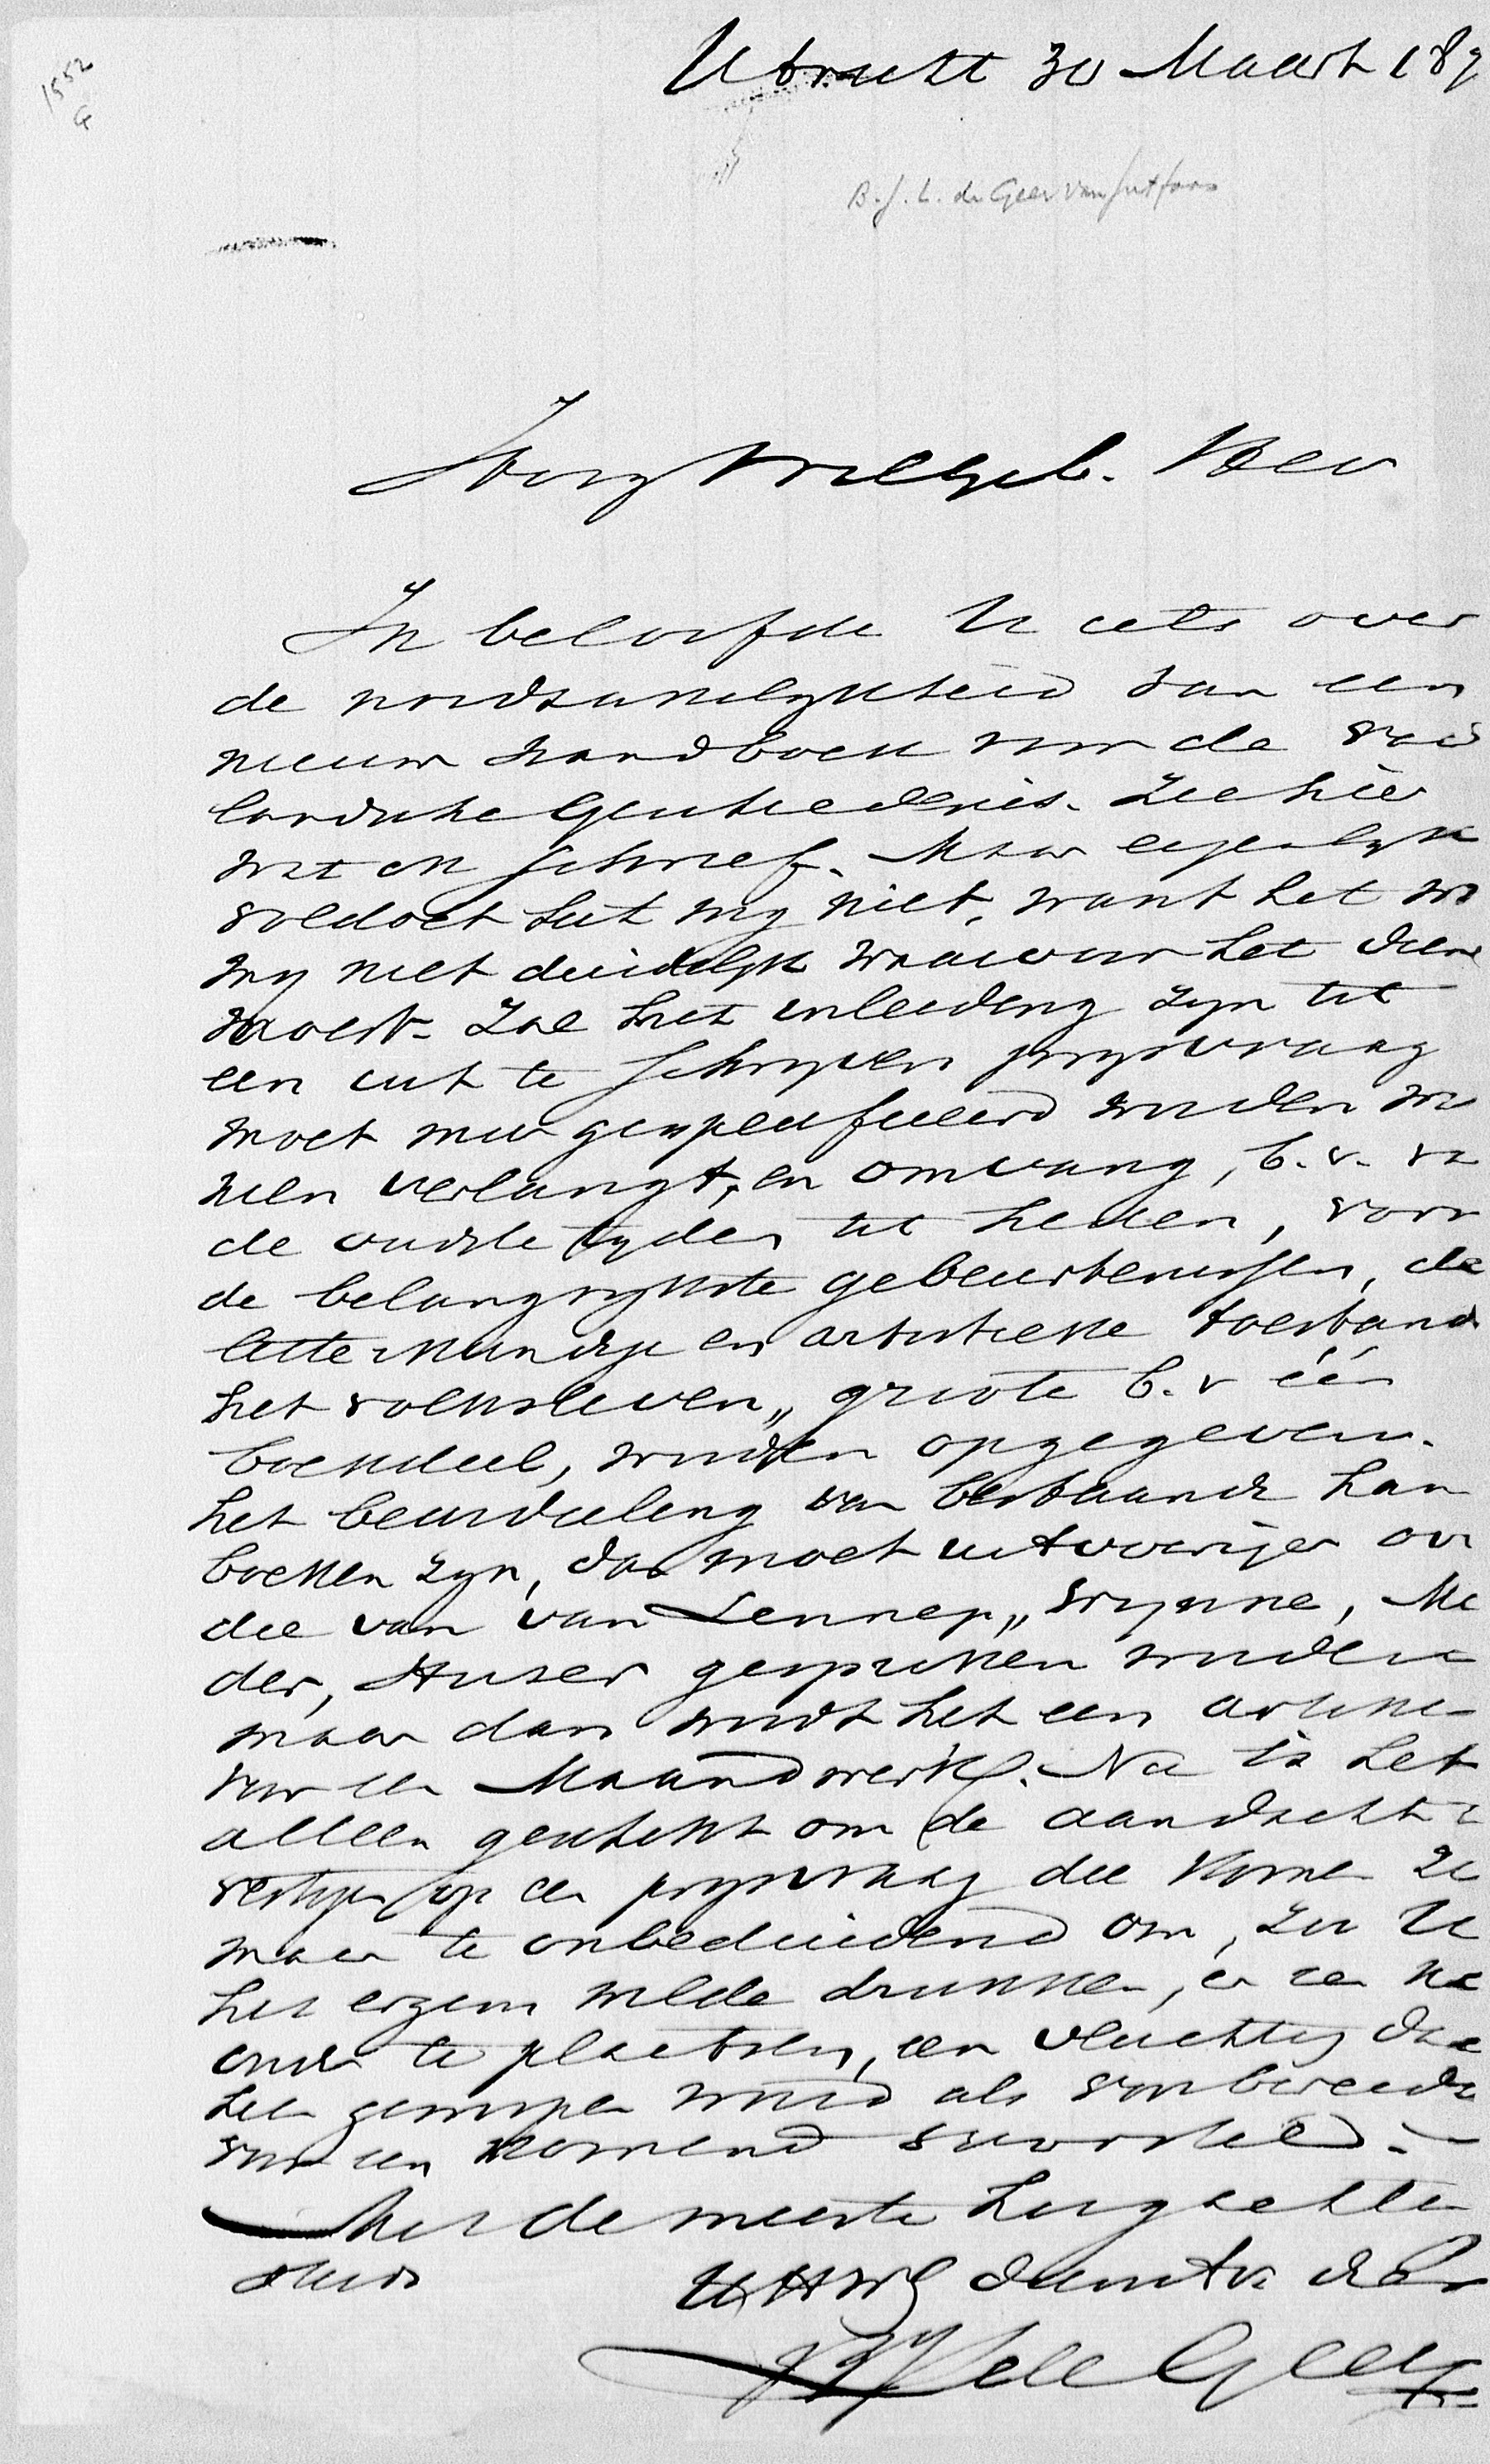 1552
G
Utrecht 30 Maart 189
B. J. L. de Geer van Jutfaas
Hoog Welgeb. Heer
Ik beloofde U iets over
de noodzakelykheid van een
nieuw handboek voor de vad
landsche Geschiedenis. Zie hier
wat ik schreef. Maar eigenlyk
voldoet het my niet, want het w
my niet duidelyk waarvoor het dien
moest. Zal het inleiding zyn tot
een uit te schryven prysvraag
moet meer gespecificeerd worden w
men verlangt, en omvang, b.v. va
de oudste tyden tot heden, voor
de belangrykste gebeurtenissen, de
letterkundige en artistieke toestand
het volksleven, grootte b.v één
boekdeel, worden opgegeven.
het beoordeeling van bestaande han
boeken zyn, dan moet uitvoeriger ov
die van van Lennep, Wynne, Me
der, Huser gesproken worden
maar dan wordt het een artikel
voor een Maandwerk. Nu is het
alleen geschikt om de aandacht t
vestigen op een prysvraag die komen za
maar te onbeduidend om, zoo U
het ergens wilde drukken, er een na
onder te plaatsen, een vluchtig da
heen geworpen woord als voorbereide
voor een komend voorstel. -
Met de meeste hoogachting
steeds
UHWG dienstv. dr
BJL de Geer